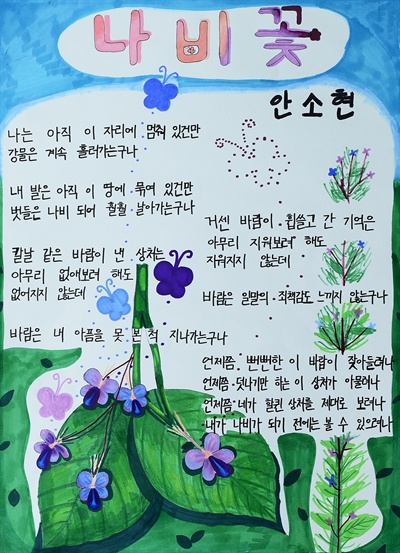 나비꽃
안소현
나는 아직 이 자리에 멈춰 있건만
강물은 계속 흘러가는구나
내 발은 아직 이 땅에 묶여 있건만
벗들은 나비 되어 훨훨 날아가는구나
칼날 같은 바람이 낸 상처는
아무리 없애보려 해도
없어지지 않는데
바람은 내 아픔을 못 본 척 지나가는구나
거센 바람이 휩쓸고 간 기억은
아무리 지워보려 해도
지워지지 않는데
바람은 일말의 죄책감도 느끼지 않는구나
언제쯤 뻔뻔한 이 바람이 잦아들려나
언제쯤 덧나기만 하는 이 상처가 아물려나
언제쯤 네가 할퀸 상처를 제대로 보려나
내가 나비가 되기 전에는 볼 수 있으려나